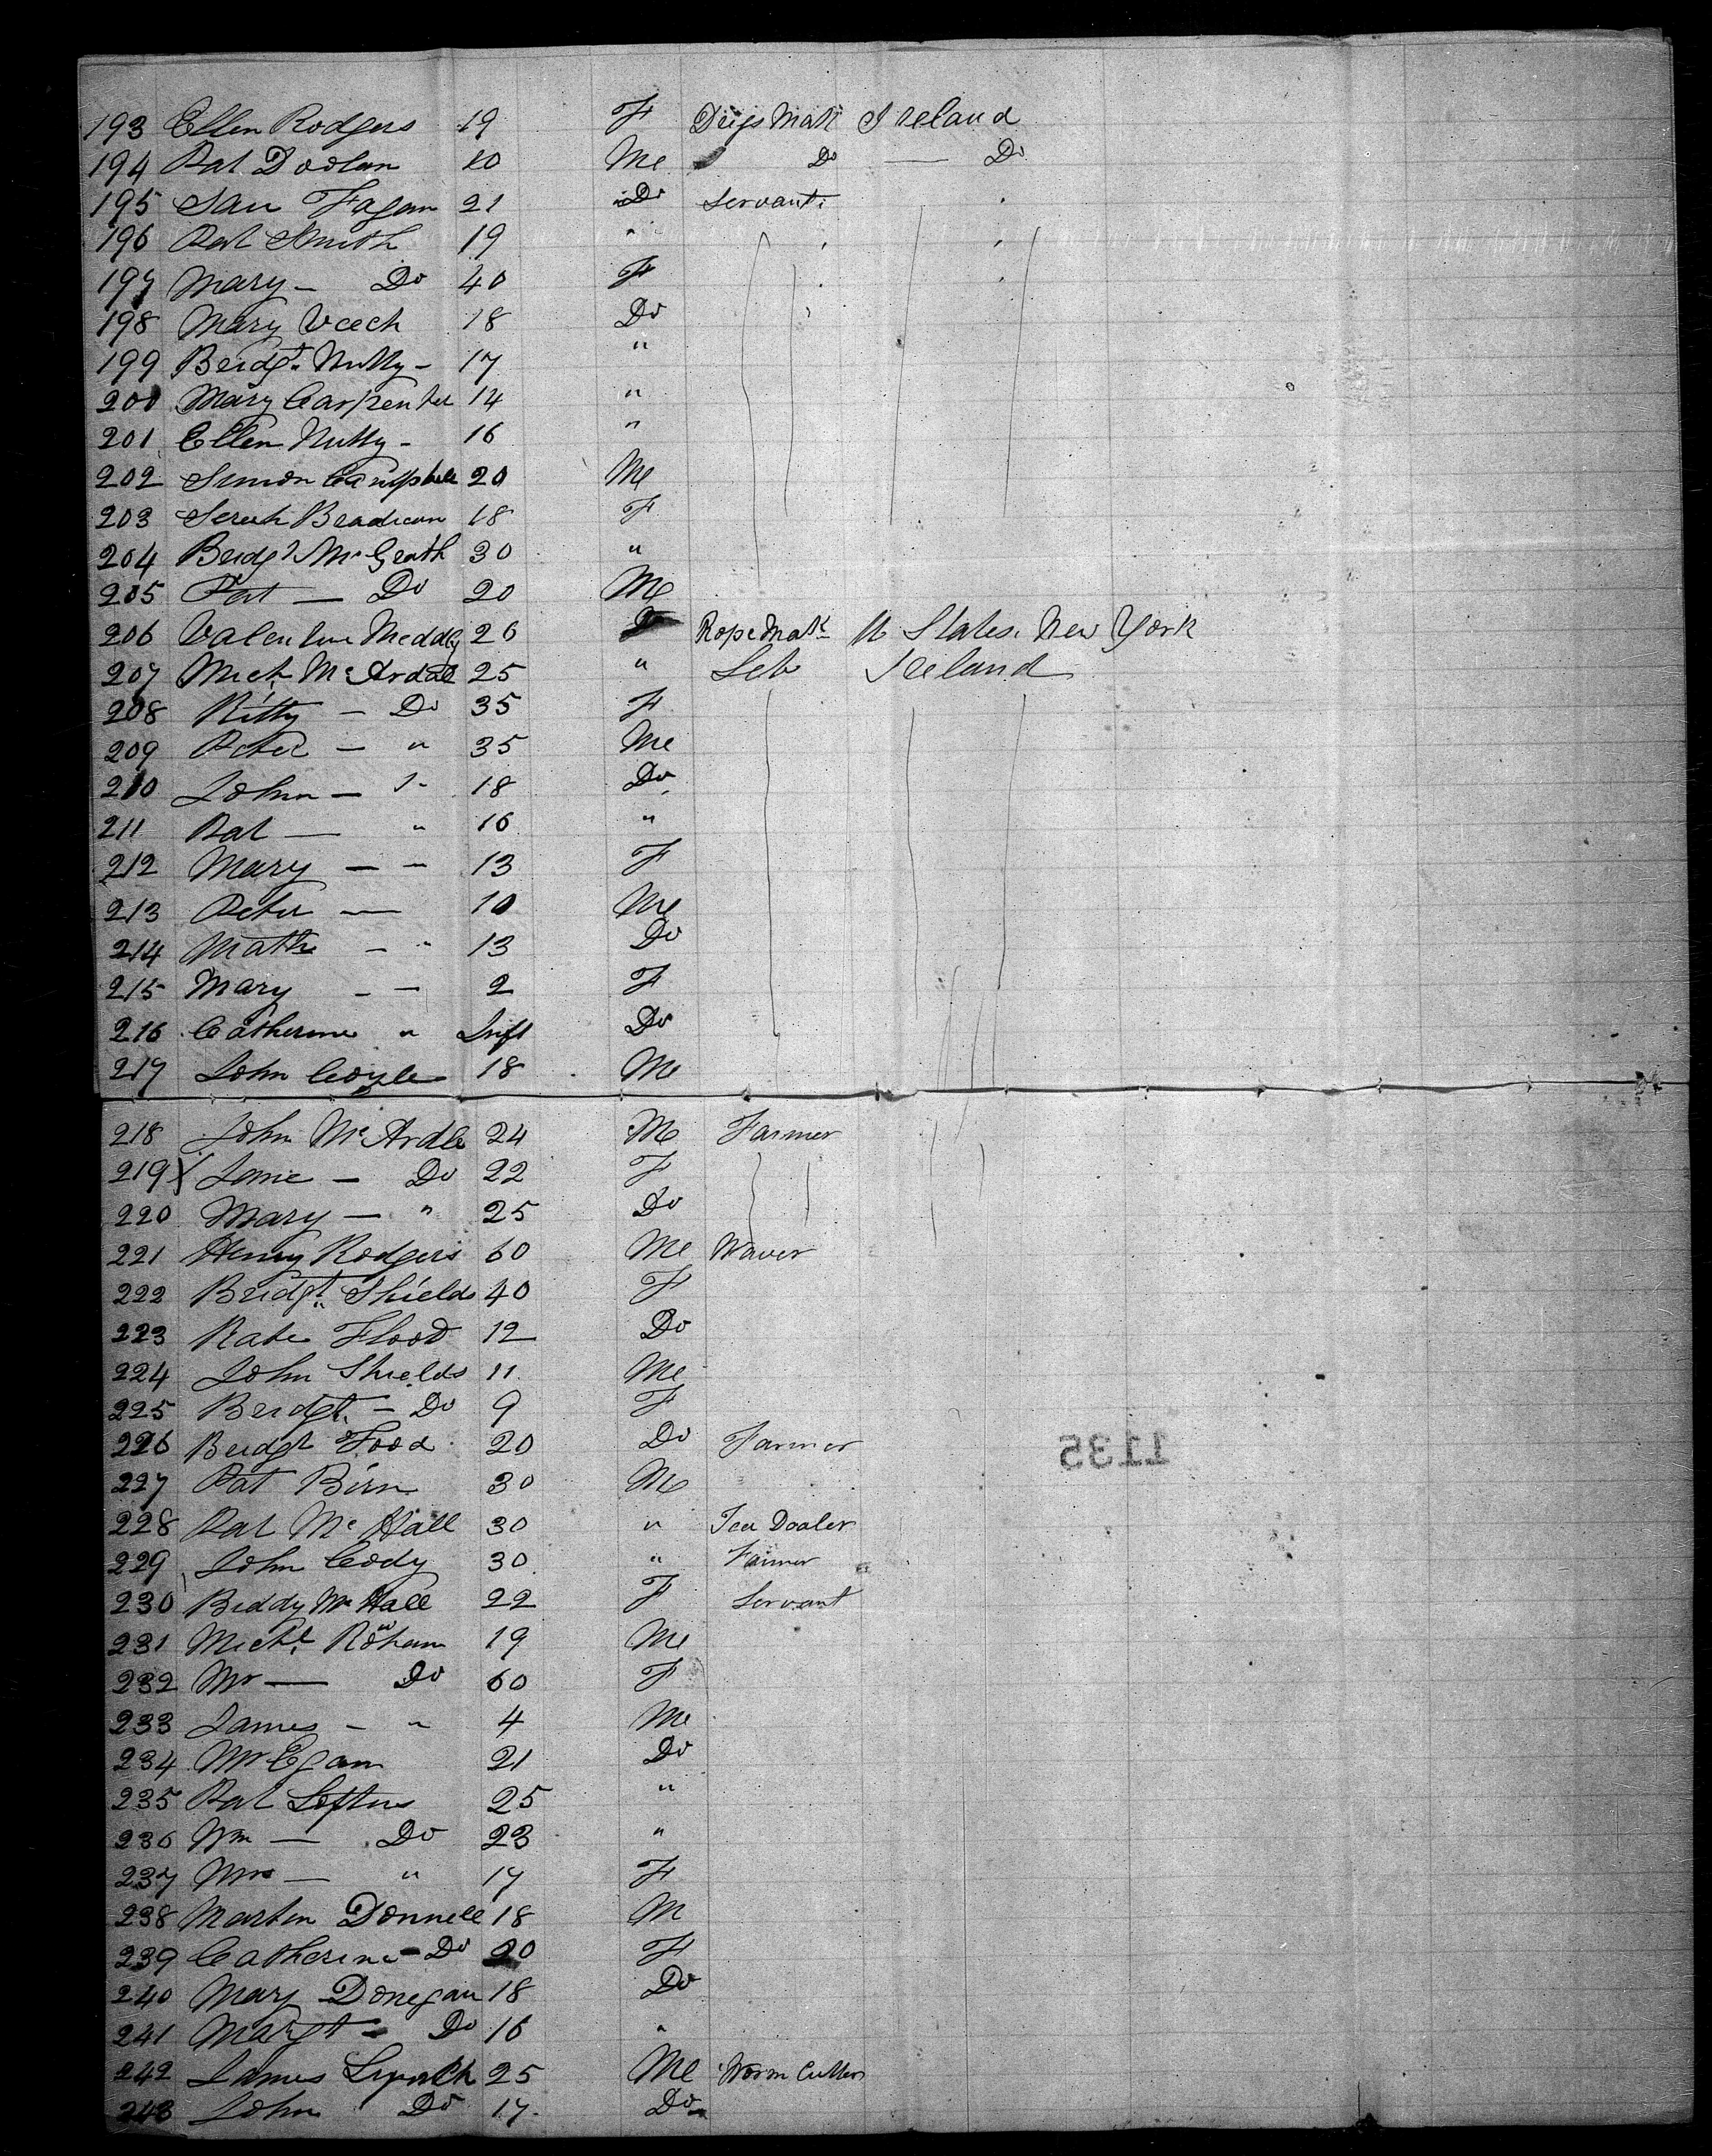 193 Ellen Rodgers 19 F Dress Mak Ireland
194 Pat Doolan 10 Me Do — Do
195 San Fagan 21 Do Servant
196 Pat Smith 19 "
197 Mary — Do 40 F
198 Mary Veech 18 Do
199 Beidgt Nulty - 17 "
200 Mary Carpenter 14 "
201 Ellen Nulty - 16 "
202 Simon Campbell 20 Me
203 Serah 18 F
204 Bridgt McGrath 30 "
205 Pat — Do 20 Me
206 Valentine Meddley 26 Do RopeMakr U States. New York
207 Mich McArdal 25 " Lab Ireland
208 Kitty — Do 35 F
209 Peter — " 35 Me
210 John — " 18 Do
211 Pat — " 16 "
212 Mary — " 13 F
213 Peter — 10 Me
214 Mathw — " 13 Do
215 Mary — — 2 F
216 Catherine " Inft Do
217 John Coyle 18 Me
218 John McArdle 24 Me Farmer
219 Jane — Do 22 F
220 Mary — " 25 Do
221 Henry Rodgers 60 Me Waver
222 Bridgt Shields 40 F
223 Kate Flood 12 Do
224 John Shields 11 Me
225 Beidgt. — Do 9 F
226 Beidgt Food 20 Do Farmer
227 Pat Birn 30 Me
228 Pat McHall 30 " Tea Dealer
229 John Cody 30 " Farmer
230 Biddy McHall 22 F Servant
231 Michl Rohan 19 Me
232 Mr — Do 60 F
233 James — " 4 Me
234 Mr Egan 21 Do
235 Pat Loftus 25 "
236 Wm — Do 23 "
237 Mrs — " 17 F
238 Martin Donnell 18 M
239 Catherine — Do 20 F
240 Mary Donegan 18 Do
241 Margt — Do 16 "
242 James Lynch 25 Me Worm Cutter
243 John Do 17 Do
1135